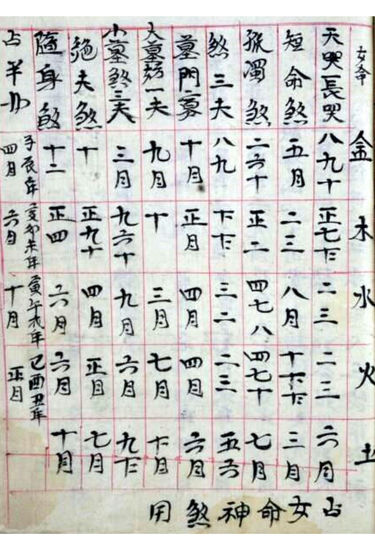 女命 金 木 水 火 土
天哭長哭 八九十 正七 二三 二三 六月
短命煞 五月 二三 八月 三月
孤濁煞 二六十 正二 四七八 四七十 七月
煞三夫 八九 三二 二三 五六
墓門寡 十月 正月 四月 四月 六月
大墓煞一夫 九月 十 三月 七月
小墓煞三夫 三月 九六十 九月 六月 九
絕夫煞 十 正九十 四月 正月 七月
隨身煞 十二 正四 六月 六月 十月
占羊刃 子辰年 四月 亥卯未年 六月 寅午戌年 十月 巳酉丑年 正月
占女命神煞用